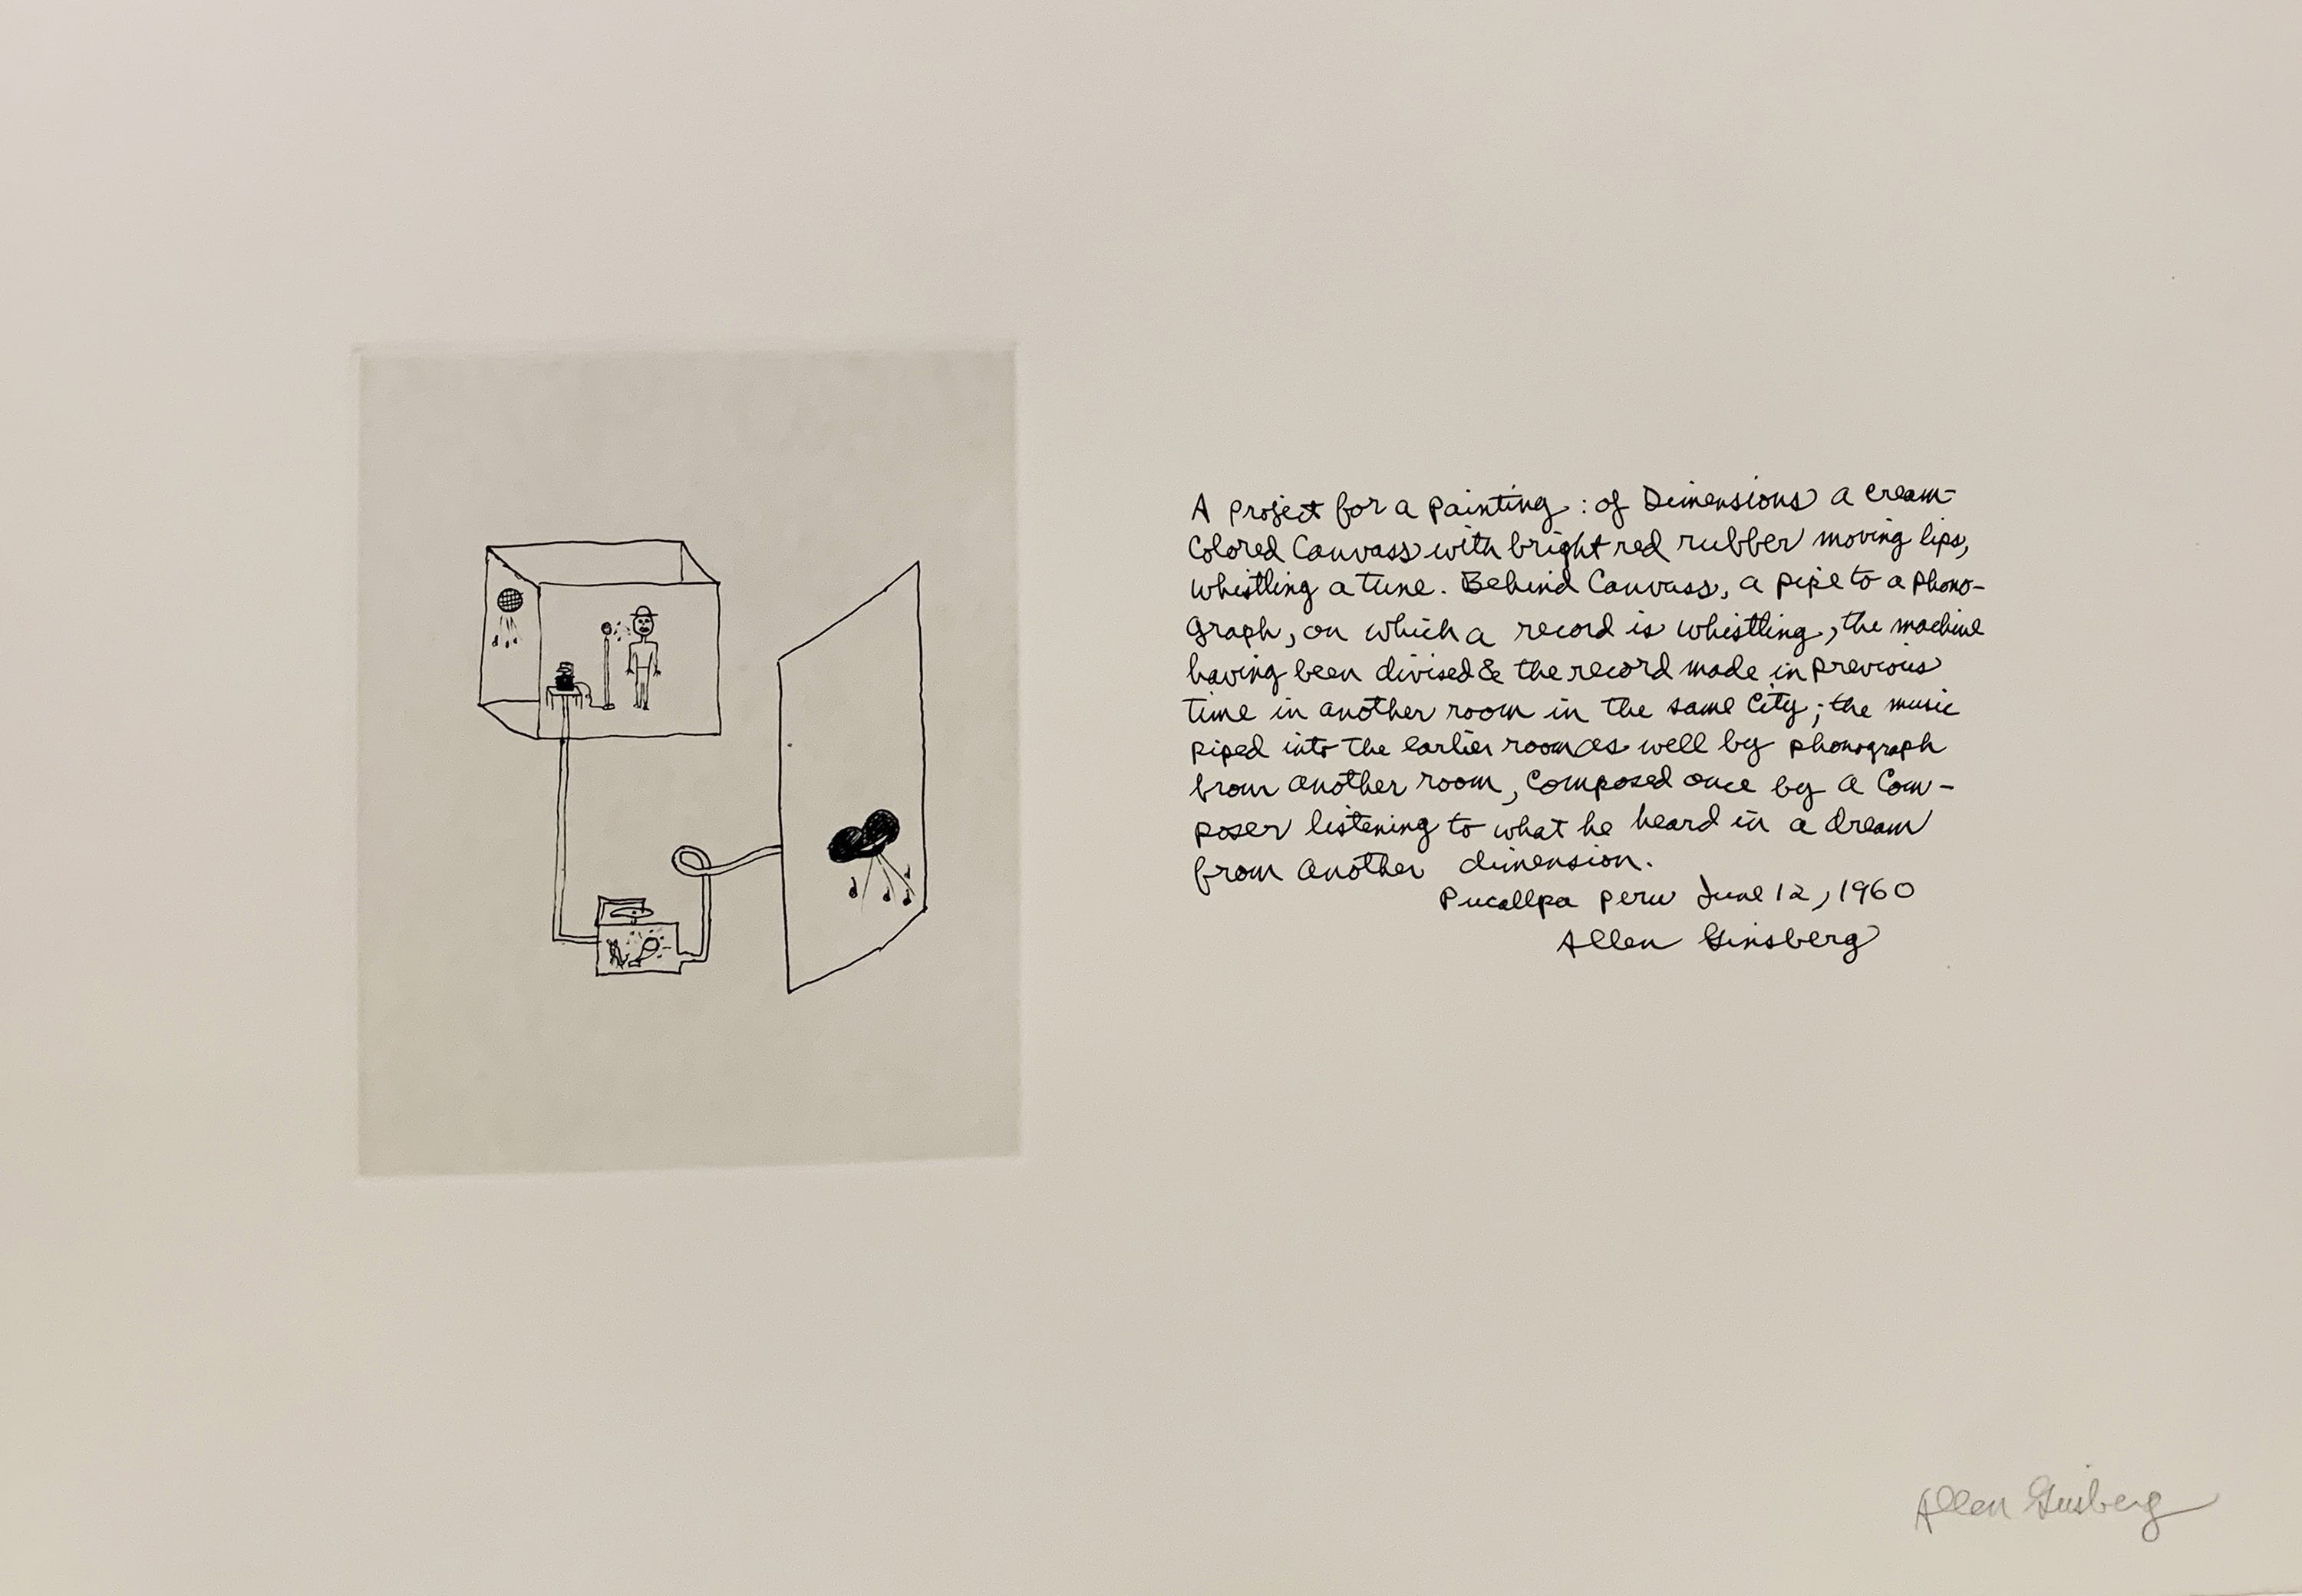 A project for a painting : of Dimensions a cream-
Colored Canvass with bright red rubber moving lips,
whistling a tune. Behind Canvass, a pipe to a phono-
graph, on which a record is whistling, the machine
having been divised & the record made in previous
time in another room in the same City; the music
piped into the earlier room as well by phonograph
from another room, Composed once by a Com-
poser listening to what he heard in a dream
from another dimension.
Pucallpa Peru June 12, 1960
Allen Ginsberg
Allen Ginsberg